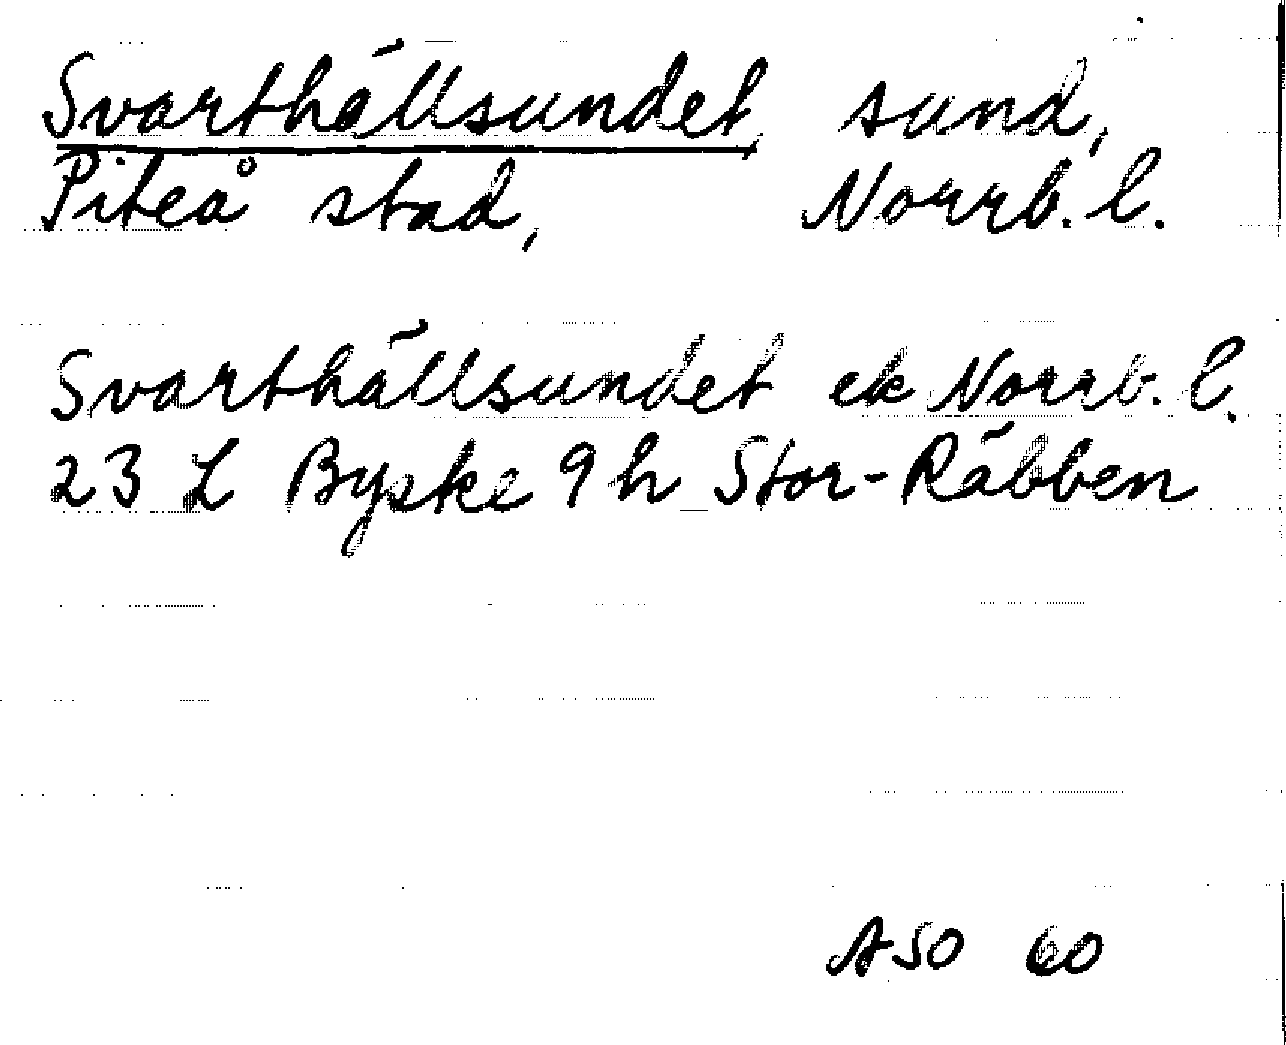 Svarthällsundet, sund,
Piteå stad, Norrb. l.
Svarthällsundet ek Norrb. l.
23 L Byske 9 h Stor-Räbben
ASO 60